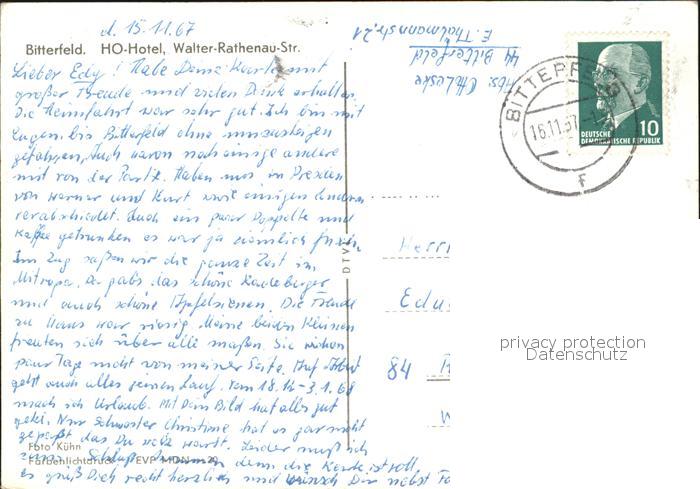 d. 15.11.67
Bitterfeld. HO-Hotel, Walter-Rathenau-Str.
Lieber Edy! Habe Deine Karte mit
großer Freude und vielen Dank erhalten.
Die Heimfahrt war sehr gut. Ich bin mit
Eugen bis Bitterfeld ohne umzusteigen
gefahren. Auch waren noch einige andere
mit von der Partie. Haben uns in Dresden
von Werner und Kurt sowie einigen anderen
verabschiedet. Noch ein paar Doppelte und
Kaffee getrunken es war ja ziemlich frisch.
Im Zug saßen wir die ganze Zeit im
Mitropa. Da gab's das schöne Radeberger
und auch schöne Apfelsienen. Die Freude
zu Haus war riesig. Meine beiden Kleinen
freuten sich über alle maßen. Sie wichen
paar Tage nicht von meiner Seite. Auf Arbeit
geht auch alles seinen Lauf. Vom 18.12.-3.1.68
mach ich Urlaub. Mit Dein Bild hat alles gut
geklappt. Nur Schwester Christine hat es gar nicht
gepaßt das Du weg warst. Leider muß ich
zum Schluß kommen denn die Karte ist voll.
es grüß Dich recht herzlich und wünsch Dir nebst Fa
Foto Kühn
Farbenlichtdruck EVP MDN -,20
DTV
Abs.
44 Bitterfeld
E. Thälmannstr. 21
BITTERFELD
16.11.67
F
DEUTSCHE
DEMOKRATISCHE REPUBLIK
10
Herrn
Edu
84
privacy protection
Datenschutz